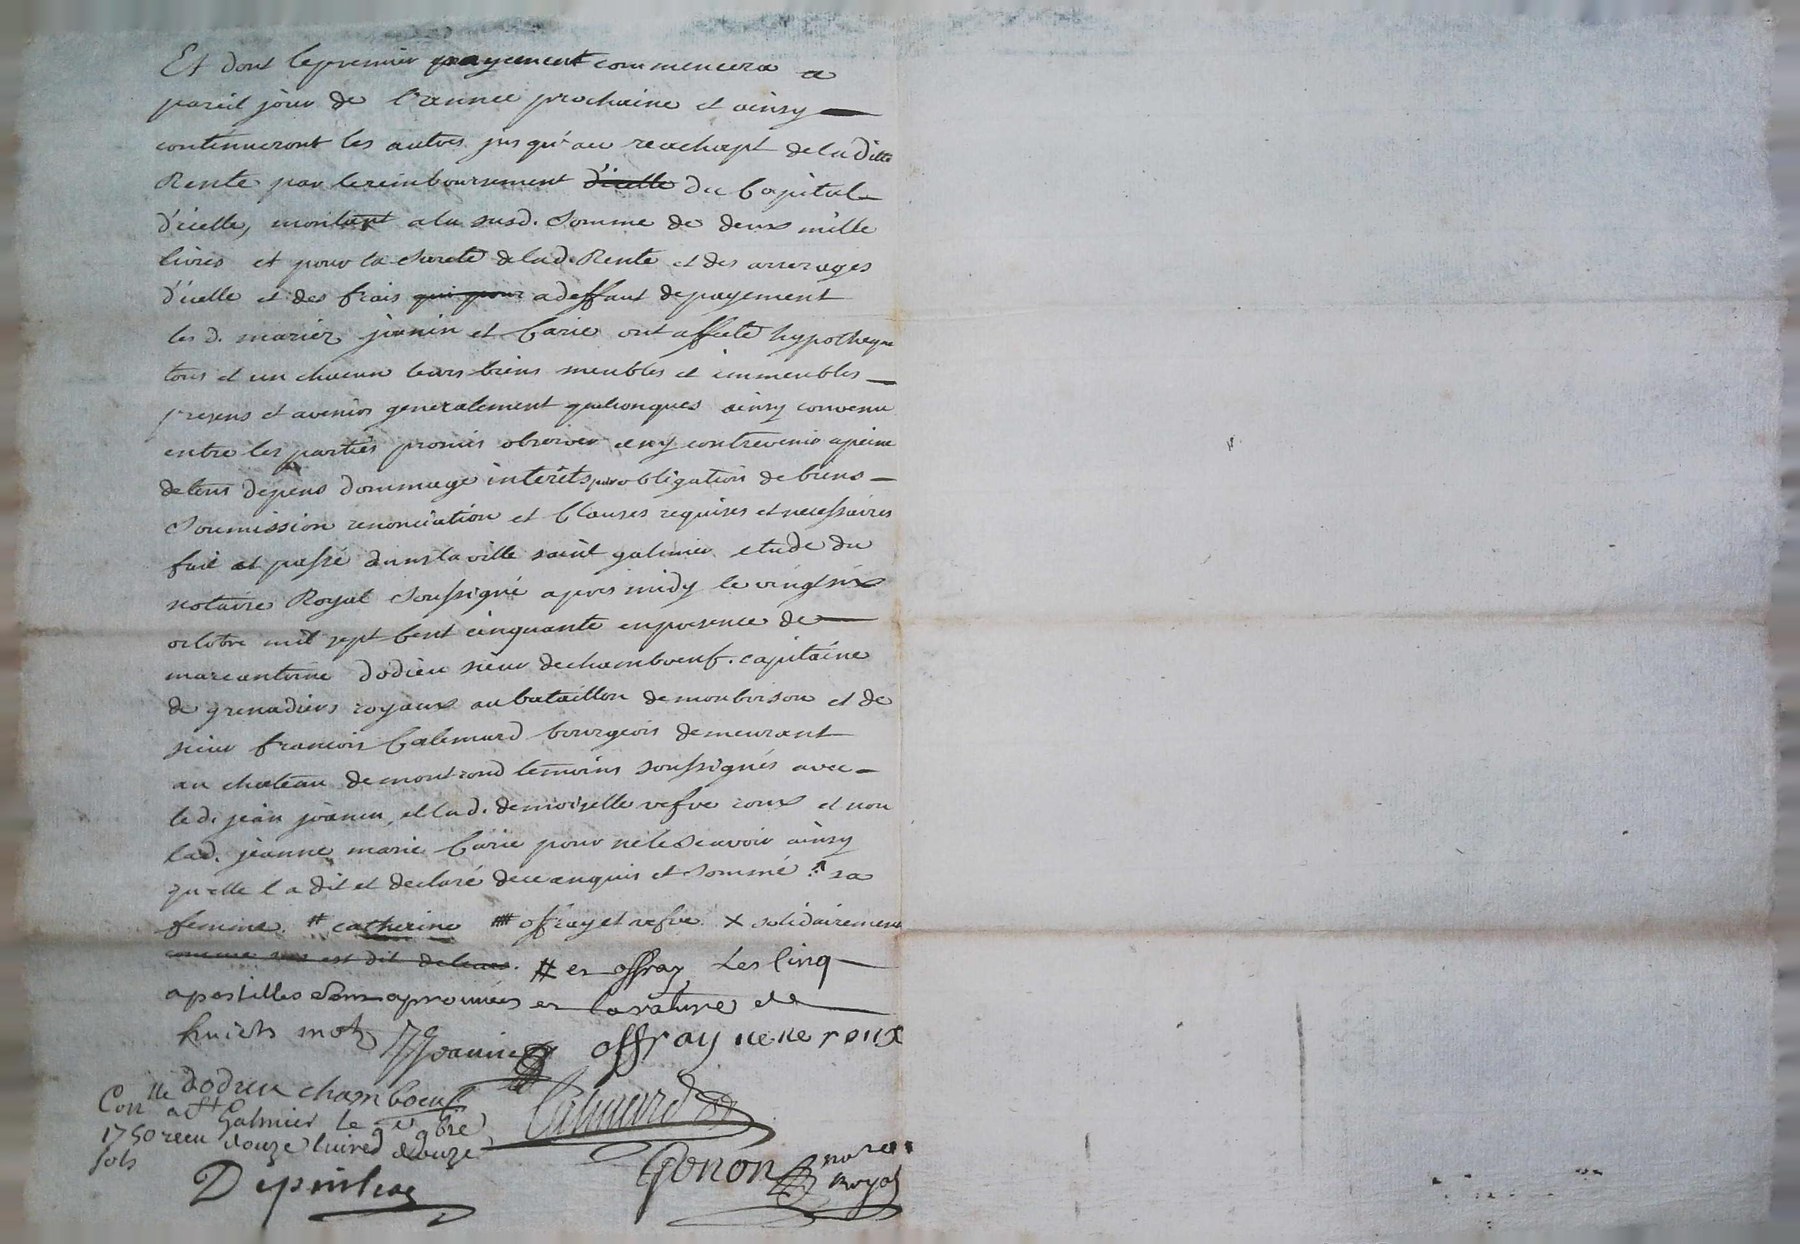 Et dont le premier payement commencera a
pareil jour de l'annee prochaine et ainsy
continueront les autres jusqu'au reachapt de la ditte
Rente par le reimboursement d'icelle du Capital
d'icelle, montant a la susd. somme de deux mille
livres et pour la sureté de lad. Rente et des arrerages
d'icelle et des frais qui pour a deffaut de payement
les d. mariez joanin et Carie ont affecté hypotheque
tous et un chacun leurs biens meubles et immeubles
presens et avenir generalement quelconques ainsy convenu
entre les parties promis observer et ny contrevenir a peine
de tous depens dommage interets par obligation de biens
soumission renonciation et Clauses requises et necessaires
fait et passé dans la ville saint galmier etude du
notaire Royal soussigné apres midy le vingt six
octobre mil sept Cent cinquante en presence de
marc antoine dodieu sieur de chamboeuf. capitaine
de grenadiers royaux au bataillon de monbrison et de
sieur francois Calemard bourgeois demeurant
au chateau de montrond temoins soussignés avec
le d. jean joanin, et lad. demoiselle vefve roux et non
lad. jeanne marie Carie pour ne le scavoir ainsy
qu'elle l a dit et declaré de ce enquis et sommé sa
femme. # catherine # offray et vefve X solidairement
comme est dit # et offray Les Cinq
apostilles sont aprouvées et la rature de
huict mots Joanin offray veve roux
dodieu chamboeuf
Calemard
Con. lle a St Galmier le 9bre
1750 receu douze livres douze
sols
Gonon no.re Royal